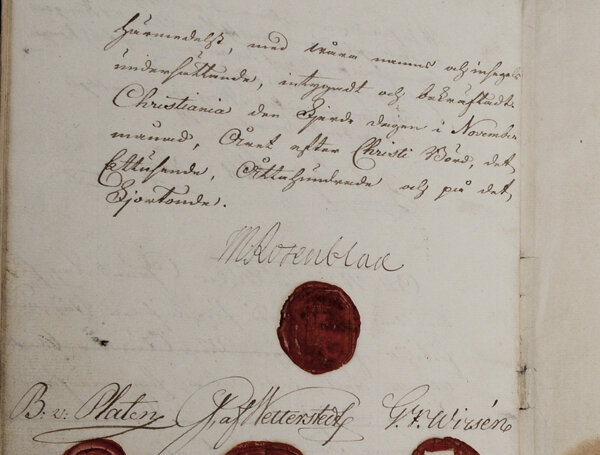 härmedelst, med våra namns och insegels
undersättande, intygadt och bekräftadt.
Christiania den Fjerde dagen i November
månad, Året efter Christi Börd, det
Ettusende, Åttahundrede och på det
Fjortonde.
M Rosenblad
B. v. Platen G. af Wetterstedt G. F. Wirsén